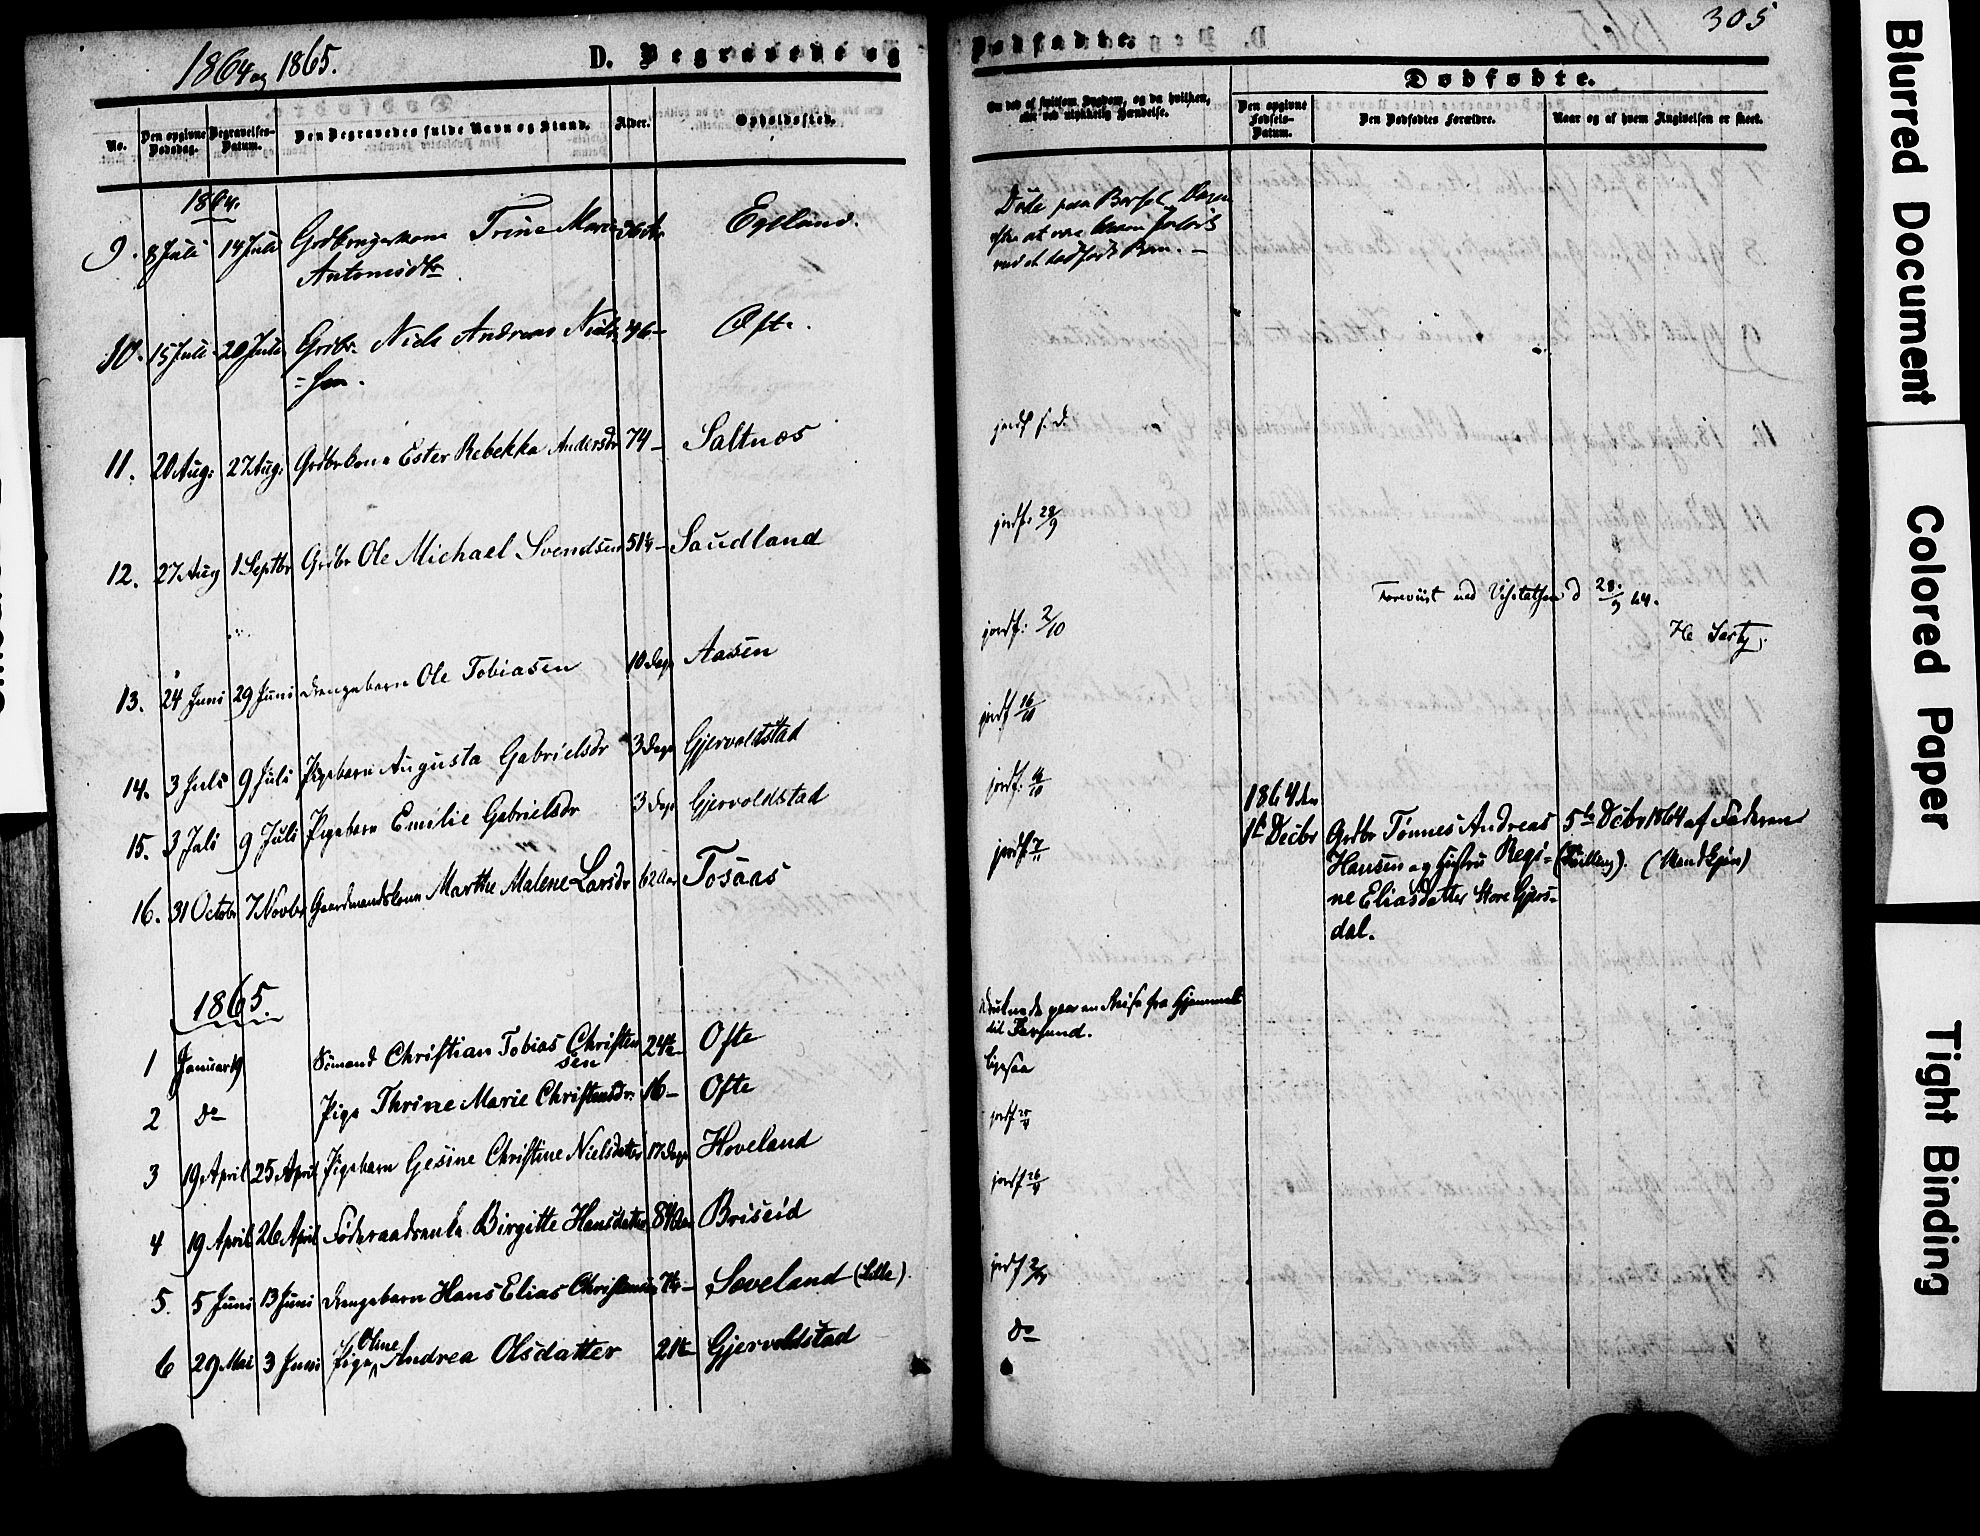 1864 og 1865.
D. Begravede og
No.
Den opgivne Dødsdag.
Begravelses-Datum.
Den Begravedes fulde Navn og Stand.
Alder.
Opholdssted.
1864.
9. 8 Juli 14 Juli Grdbrugerkone Trine Marie 36 Aar Egeland.
Antonisdtr.
10. 15 Juli 20 Juli Grdbr. Niels Andreas Niels 46 – Ofte.
= sen.
11. 20 Aug: 27 Aug: Grdbrkone Ester Rebekka Andersdr 74 – Saltnæs
12. 27 Aug 1 Septbr Grdbr Ole Michael Svendsen 51½ – Saudland
13. 24 Juni 29 Juni Drengebarn Ole Tobiasen 10 Dage Aasen
14. 3 Juli 9 Juli Pigebarn Augusta Gabrielsdr 3 Dage Gjervoldstad
15. 3 Juli 9 Juli Pigebarn Emilie Gabrielsdr 3 Dage Gjervoldstad
16. 31 Octobr 7 Novbr Gaardmandskone Marthe Malene Larsdr 62 Aar Tosaas
1865.
1 Januar 19 Sømand Christian Tobias Christen 24 Ofte
sen
2 do Pige Thrine Marie Christensdr. 16 – Ofte
3 19 April 25 April Pigebarn Gesine Christine Nielsdatter 17 Dage Hoveland
4 19 April 26 April Føderaadsenke Birgitte Hansdatter 84 Aar Briseid
5. 5 Juni 13 Juni Drengebarn Hans Elias Christensen Loveland (Lille).
Oline
6 29 Mai 3 Juni Pige Andrea Olsdatter 21 Gjervoldstad
305
Dødfødte.
Om død af smitsom Sygdom, og da hvilken,
eller ved ulykkelig Hændelse.
Dødfødte.
Den opgivne Fødsels-Datum.
Den Dødfødtes Forældre.
Naar og af hvem Angivelsen er skeet.
Døde paa Barsel
efter at være
ved et dødfødt Barn. –
jordf. s. d.
jordf. 28/9
Foreviist ved Visitatsen d 28/9 64.
jordf: 2/10
jordf 16/10
jordf. 16/10
1864 den
1ste Decbr Grdbr Tønnes Andreas 5te Decbr 1864 af Faderen
jordf 7/11
Hansen og Hustru Regi= (Tvilling). (Mandkjøn)
ne Eliasdatter Store Gjers=
dal.
druknede paa en Reise fra Hjemmet
til Farsund.
ligesaa
jordf 25/4
jordf 26/4
jordf
do
Blurred Document
Colored Paper
Tight Binding